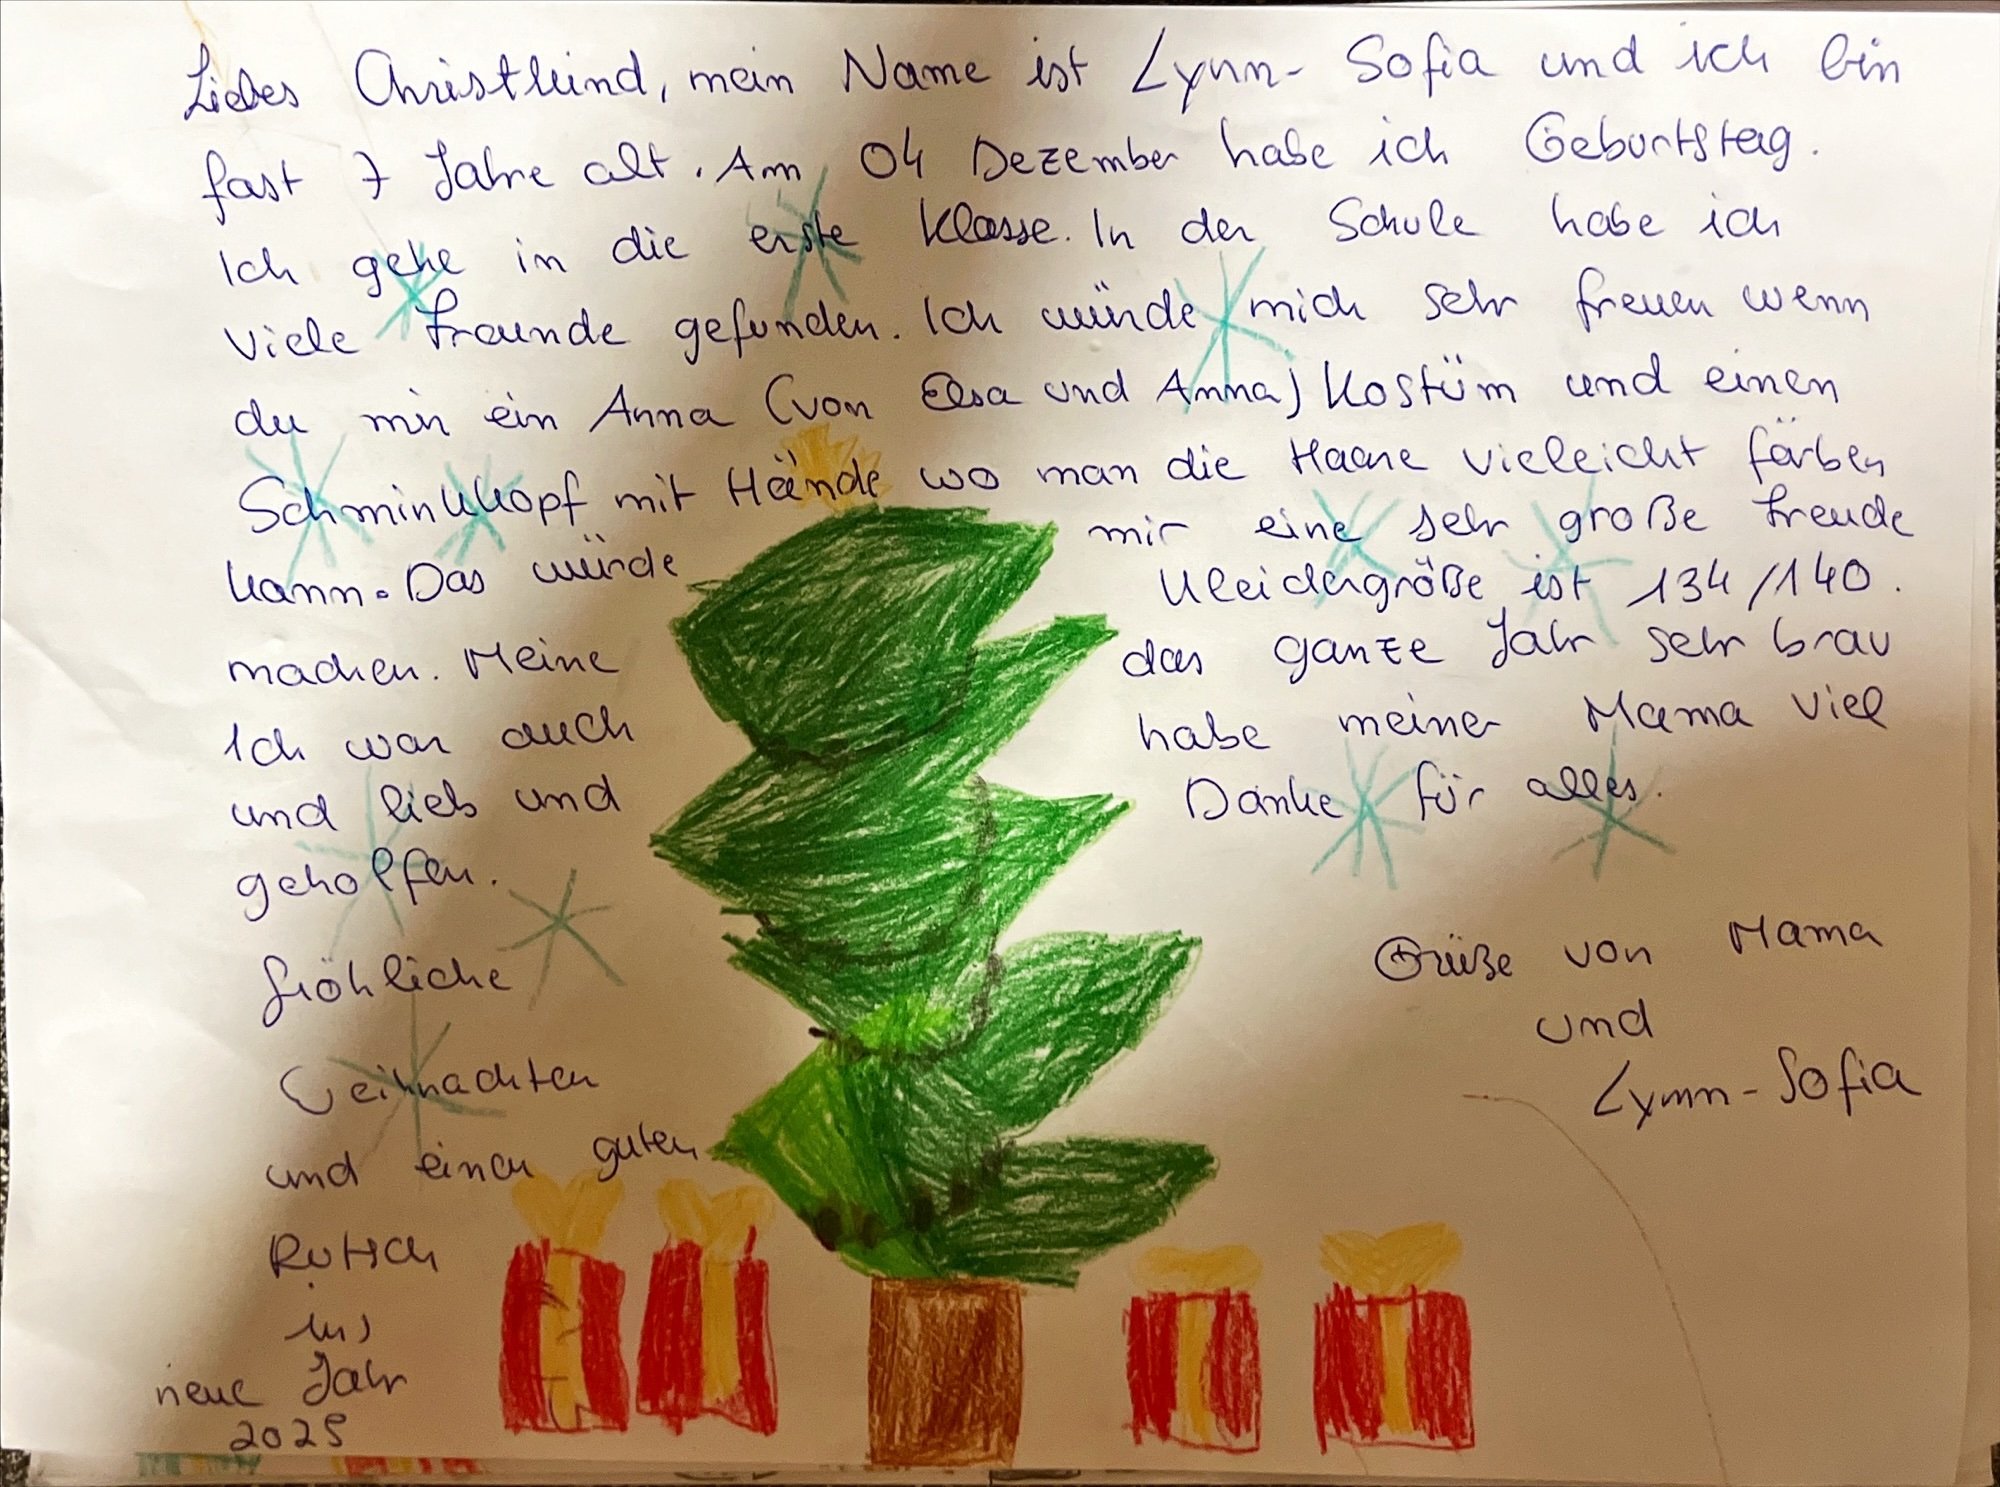 Liebes Christkind, mein Name ist Lynn-Sofia und ich bin
fast 7 Jahre alt. Am 04 Dezember habe ich Geburtstag.
Ich gehe in die erste Klasse. In der Schule habe ich
viele Freunde gefunden. Ich würde mich sehr freuen wenn
du mir ein Anna (von Elsa und Anna) Kostüm und einen
Schminkkopf mit Hände wo man die Haare vieleicht färben
kann. Das würde mir eine sehr große Freude
machen. Meine Kleidergröße ist 134/140.
Ich war auch das ganze Jahr sehr brav
und lieb und habe meiner Mama viel
geholfen. Danke für alles.
fröhliche
Weihnachten
und einen guten
Rutsch
ins
neue Jahr
2025
Grüße von Mama
und
Lynn-Sofia